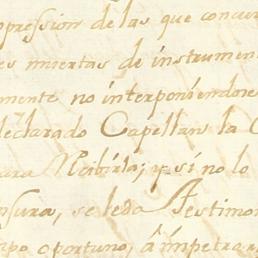 presion de las que concur
es miertas de instrumen
mente no interponiendose
declarado Capellan la C
ara Recibirla; y si no lo
nsura, se le da Testimon
po oportuno, â impetrar